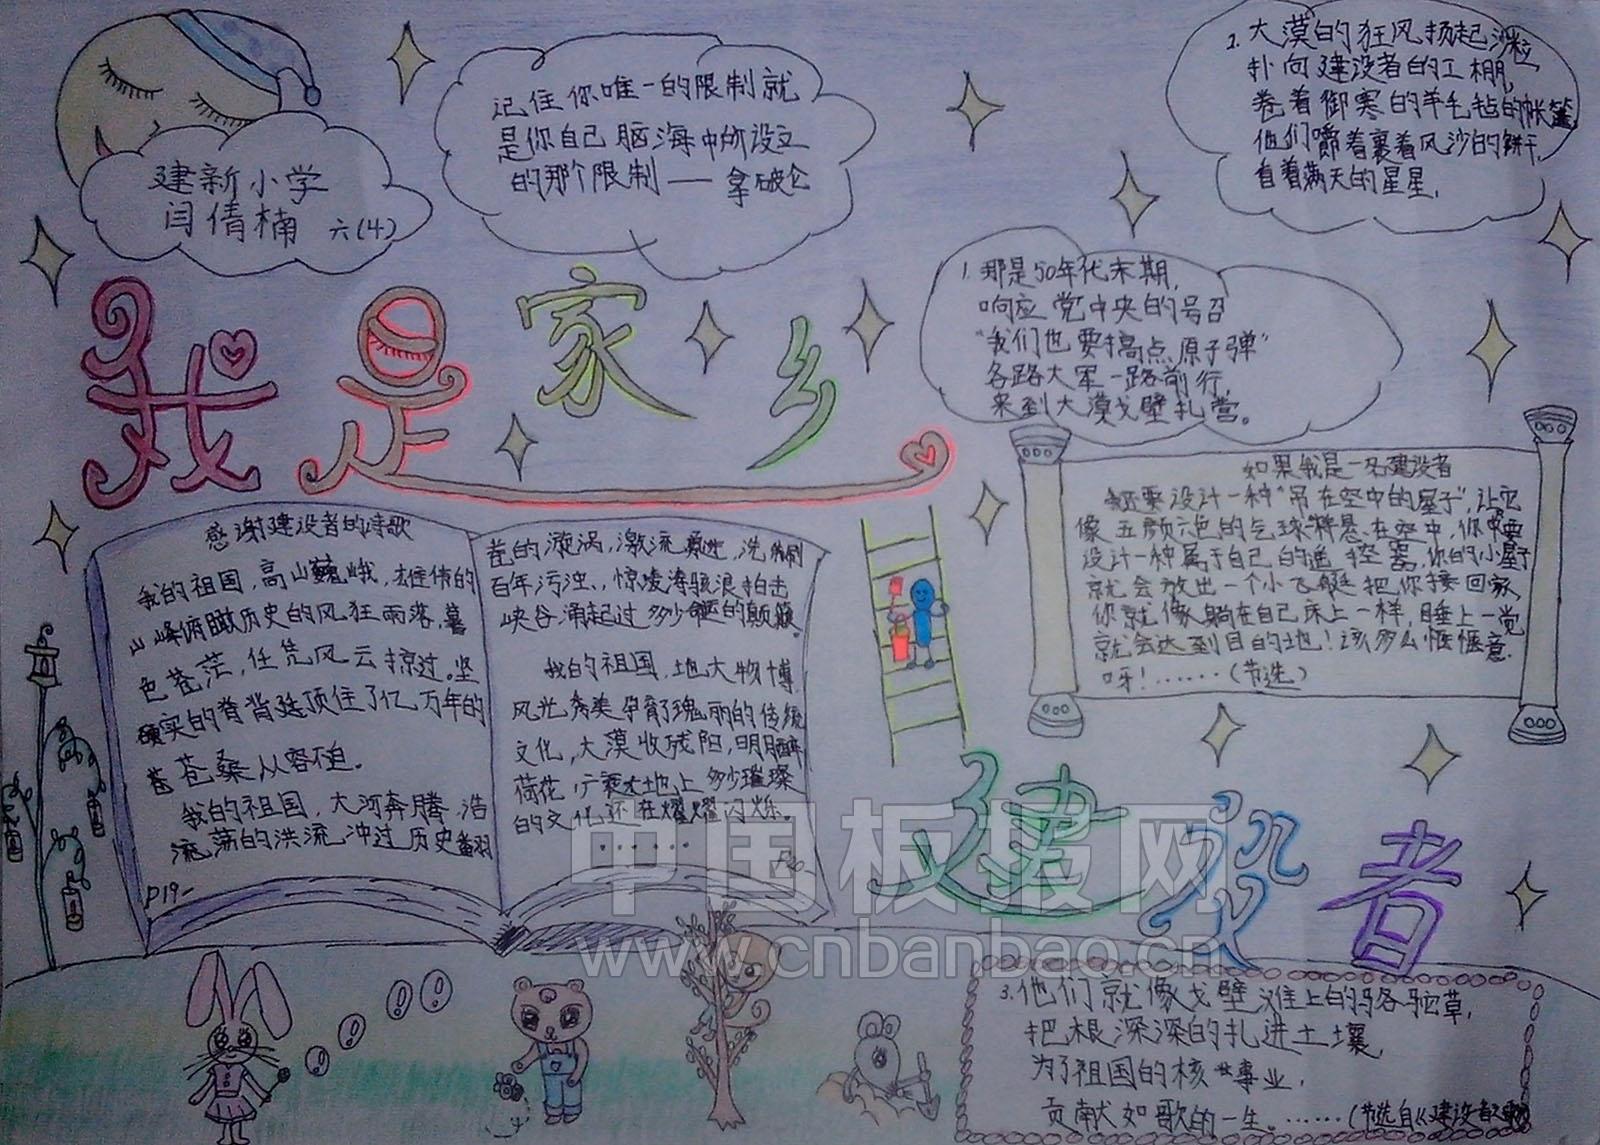 建新小学
闫倩楠 六(4)
记住你唯一的限制就
是你自己脑海中所设立
的那个限制——拿破仑
2. 大漠的狂风扬起沙粒
扑向建设者的工棚,
卷着御寒的羊毛毡的帐篷
他们嚼着裹着风沙的饼干,
自着满天的星星,
1. 那是50年代末期,
响应党中央的号召
“我们也要搞点原子弹”
各路大军一路前行,
来到大漠戈壁扎营。
我是家乡
建设者
感谢建设者的诗歌
我的祖国,高山巍峨,雄伟的
山峰俯瞰历史的风狂雨落,暮
色苍茫,任凭风云掠过。坚
实的脊背顶住了亿万年的
苍桑从容不迫。
我的祖国,大河奔腾,浩
荡的洪流冲过历史翻
P19-
卷的漩涡,激流洗刷
百年污浊,惊涛骇浪拍击
峡谷涌起过多少命运的颠簸。
我的祖国,地大物博,
风光秀美孕育了瑰丽的传统
文化,大漠收残阳,明月醉
荷花,广袤大地上多少璀璨
的文化还在熠熠闪烁。
······
如果我是一名建设者
我还要设计一种“吊在空中的屋子”,让它
像五颜六色的气球一样悬在空中,你要
设计一种属于自己的遥控器,你的小屋子
就会放出一个小飞艇把你接回家
你就像躺在自己床上一样,睡上一觉
就会达到目的地!该多么惬惬意
呀!······(节选)
3. 他们就像戈壁滩上的骆驼草,
把根深深的扎进土壤,
为了祖国的核事业,
贡献如歌的一生。······(节选自《建设者之歌》)
中国板报网
www.cnbanbao.cn